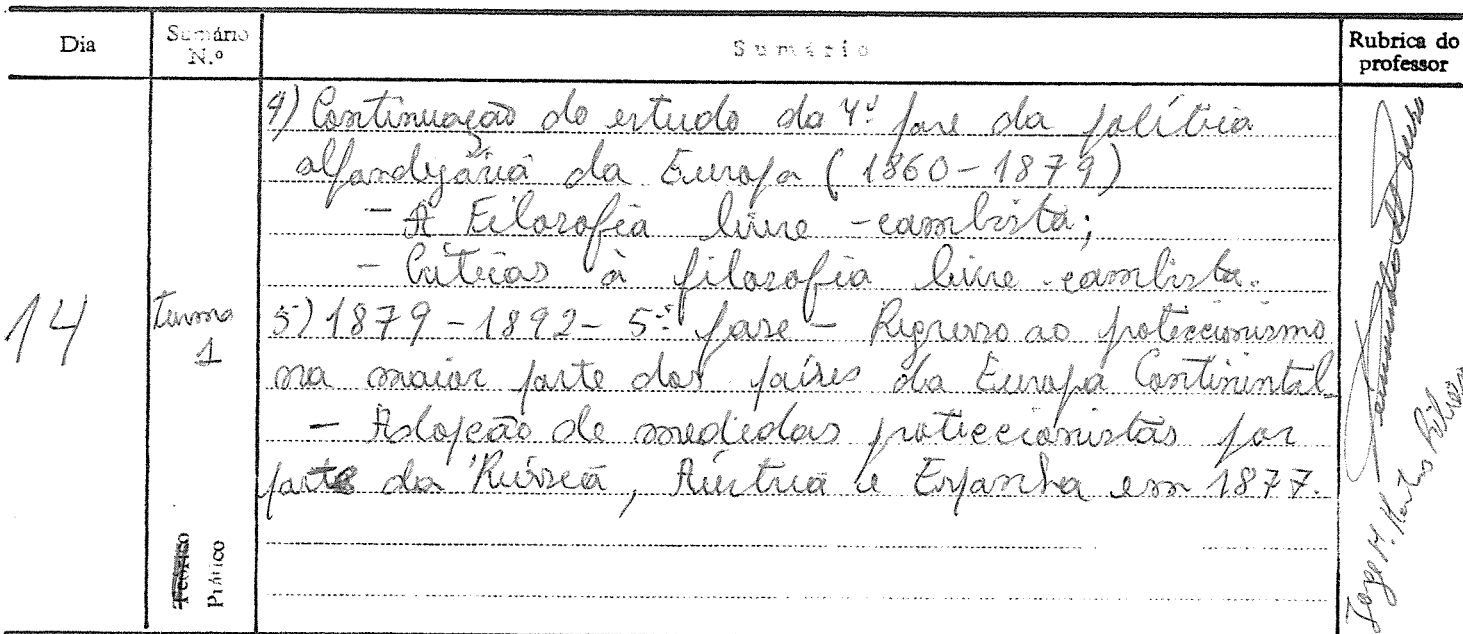 Dia
Sumário N.º
Sumário
Rubrica do professor
14
Turma 1
Teórico
Prático
4) Continuação do estudo da 4ª fase da política
alfandegária da Europa (1860-1879)
- A Filosofia livre-cambista;
- Críticas à filosofia livre-cambista.
5) 1879-1892 - 5ª fase - Regresso ao proteccionismo
na maior parte dos países da Europa Continental
- Adopção de medidas proteccionistas por
parte da Rússia, Áustria e Espanha em 1877.
Jorge M. Martins Ribeiro